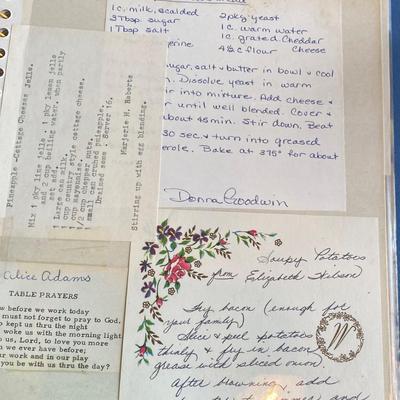 1c. milk, scalded
3 Tbsp sugar
1 Tbsp salt
2 pkg yeast
1c. warm water
1c. grated Cheddar
Cheese
4½ c flour
ugar, salt & butter in bowl & cool
Dissolve yeast in warm
into mixture. Add cheese &
until well blended. Cover &
about 45 min. Stir down. Beat
30 sec. & turn into greased
erole. Bake at 375° for about
Donna Goodwin
Pineapple -Cottage Cheese Jello.
Mix 1 pkg lime jello , 1 pkg lemon jello
and 2 cup boiling water. when partly
set add,
1 Large can milk.
1 cup country style cottage cheese.
1 cup mayonaise.
1/2 cup chopper nuts.
1 small can cruned pineapple.
Drained some . Serves 16.
Marjorie H. Roberts
Stirring up with egg blending.
Alice Adams
TABLE PRAYERS
w before we work today
must not forget to pray to God.
kept us thru the night
woke us with the morning light
us, Lord, to love you more
we ever have before;
ur work and in our play
you be with us thru the day?
Soupy Potatoes
from Elizabeth
Fry bacon (enough for
your family)
Slice & peel potatoes
thinly & fry in bacon
grease with sliced onion.
After browning, add